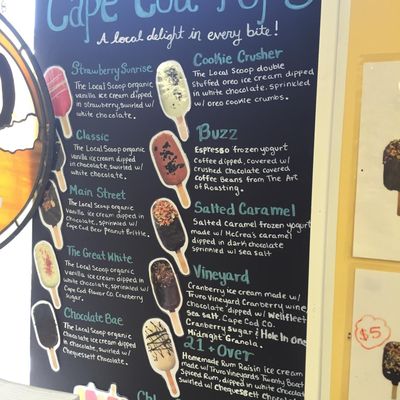 Cape Cod Pops
A local delight in every bite!
Strawberry Sunrise
The Local Scoop organic
vanilla ice cream dipped
in strawberry, swirled w/
white chocolate.
Classic
The Local Scoop organic
Vanilla ice cream dipped
in chocolate, swirled w/
chocolate.
Main Street
The Local Scoop organic
Vanilla ice cream dipped in
Chocolate, sprinkled w/
Cape Cod Beer peanut Brittle.
The Great White
The Local Scoop organic
vanilla ice cream dipped in
white chocolate, sprinkled w/
Cape Cod Flavor Co. Cranberry
Sugar.
Chocolate Bae
The Local Scoop organic
Chocolate ice cream dipped
in chocolate, swirled w/
Chequessett Chocolate.
Cookie Crusher
The Local Scoop double
Stuffed oreo ice cream dipped
in white chocolate, sprinkled
w/ oreo cookie crumbs.
Buzz
Espresso frozen yogurt
Coffee dipped, covered w/
crushed Chocolate covered
coffee Beans from The Art
of Roasting.
Salted Caramel
Salted Caramel frozen yogurt
made w/ McCrea's caramel
dipped in dark chocolate
sprinkled w/ sea salt
Vineyard
Cranberry ice cream made w/
Truro Vineyard Cranberry wine,
Chocolate dipped w/ Wellfleet
Sea Salt, Cape Cod Co.
Cranberry sugar & Hole In One
Midnight Granola.
21 + Over
Homemade Rum Raisin ice cream
made w/ Truro Vineyards Twenty Boat
Spiced Rum, dipped in white chocolate
swirled w/ Chequessett Chocolate.
$5